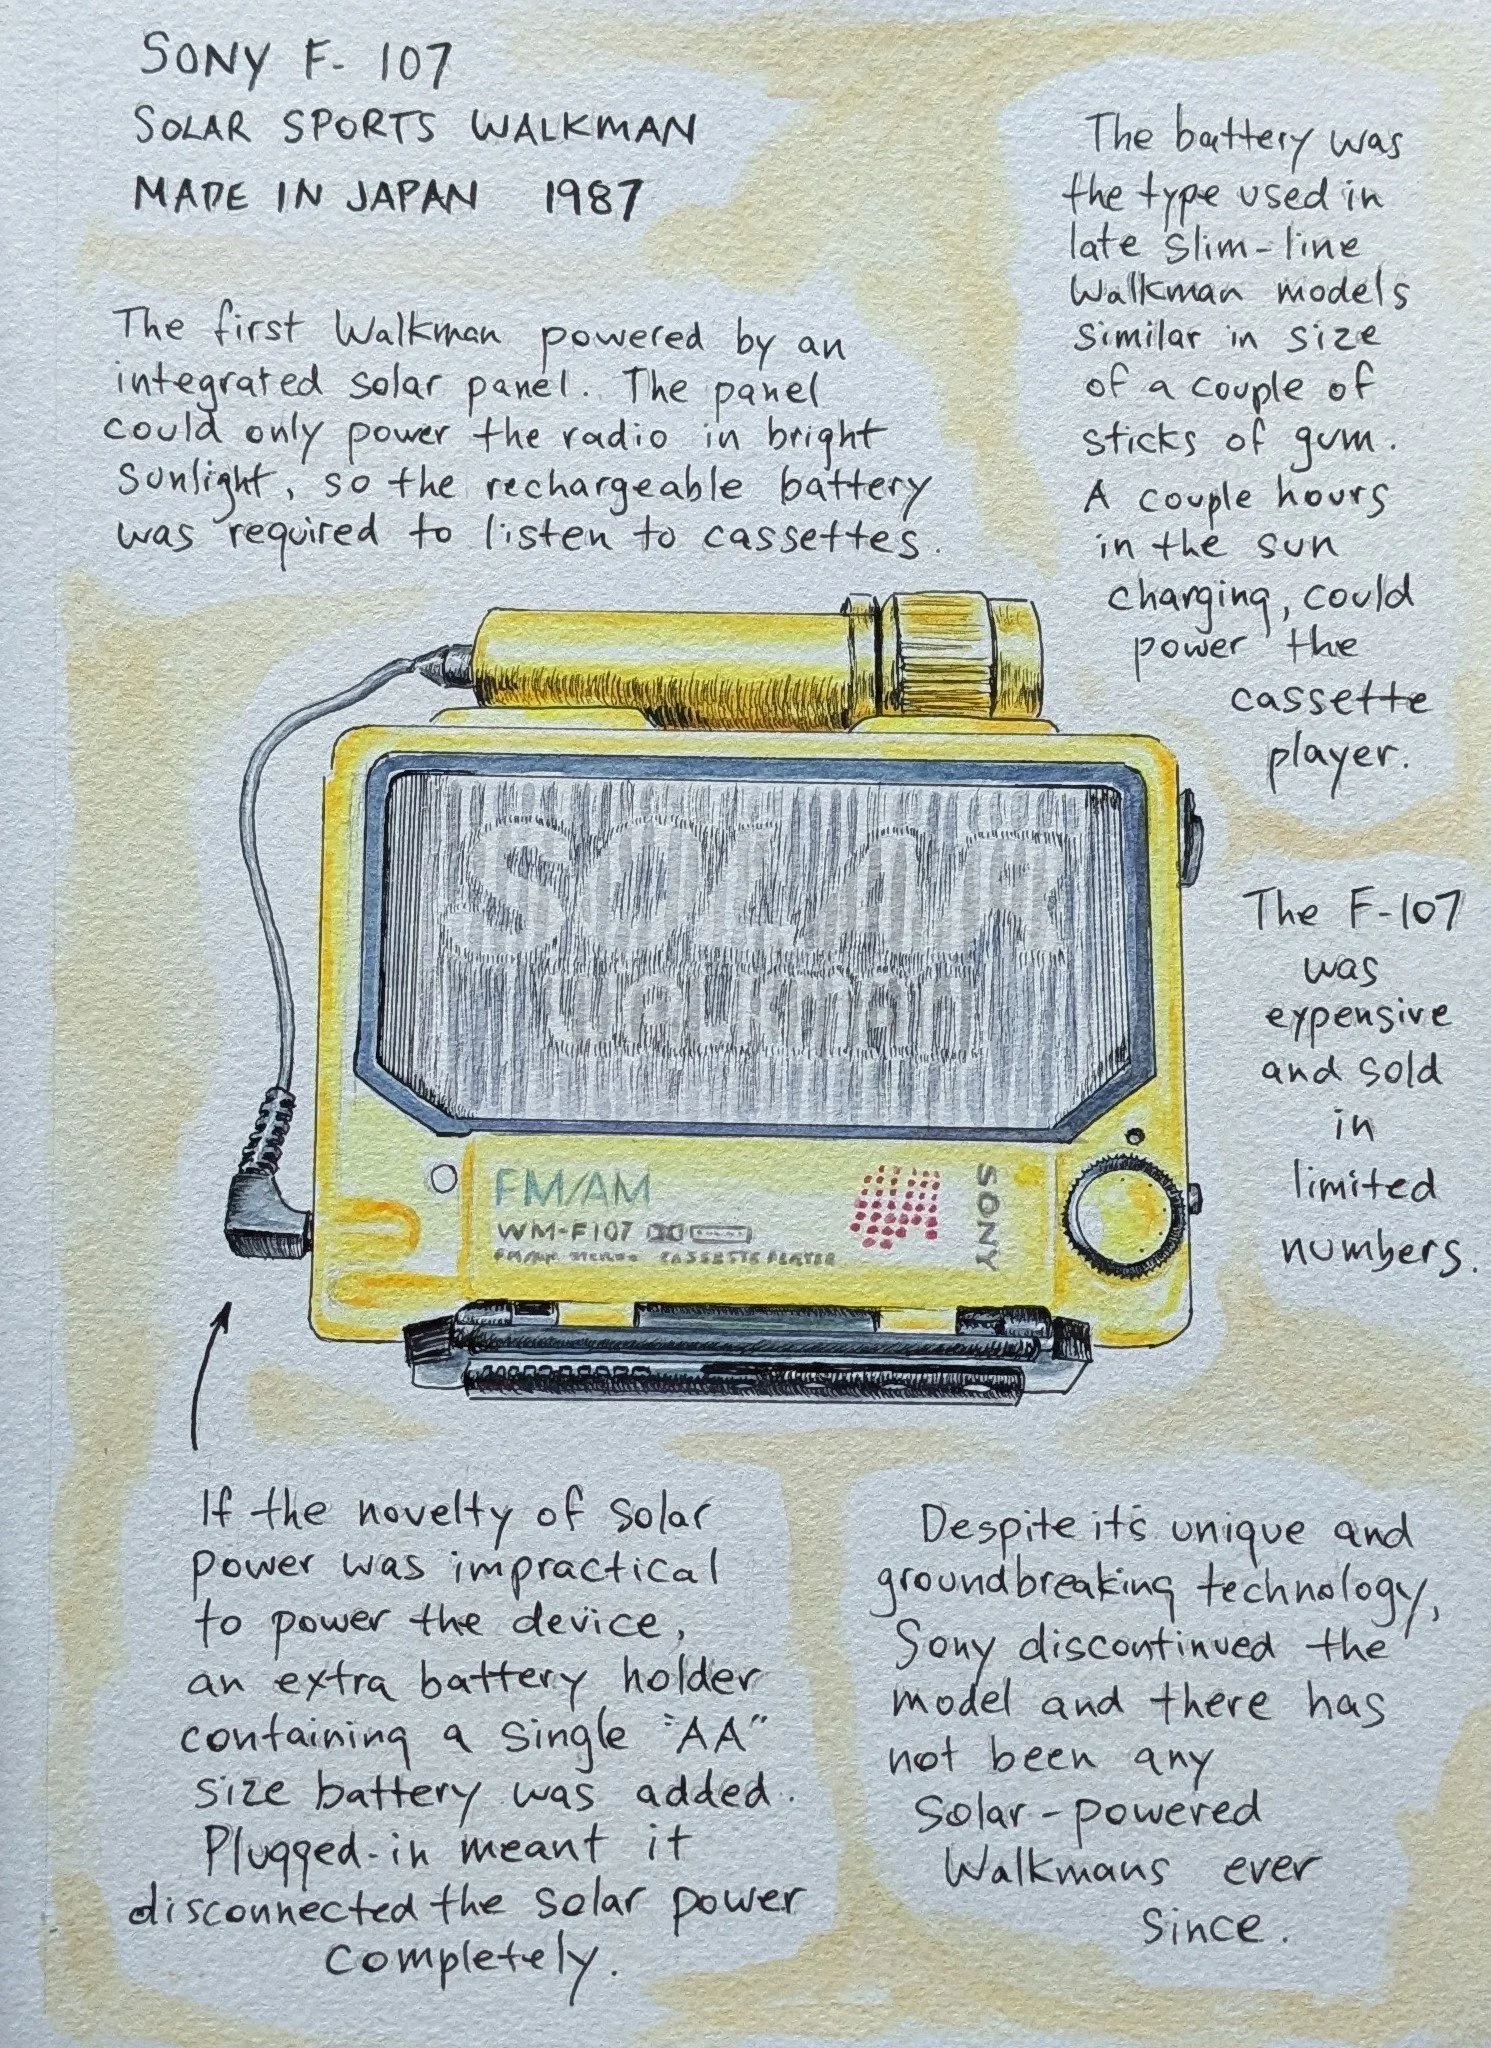 SONY F-107
SOLAR SPORTS WALKMAN
MADE IN JAPAN 1987
The first Walkman powered by an
integrated solar panel. The panel
could only power the radio in bright
sunlight, so the rechargeable battery
was required to listen to cassettes.
The battery was
the type used in
late slim-line
Walkman models
similar in size
of a couple of
sticks of gum.
A couple hours
in the sun
charging, could
power the
cassette
player.
SOLAR
WALKMAN
The F-107
was
expensive
and sold
in
limited
numbers.
FM/AM
WM-F107
FM/AM STEREO CASSETTE PLAYER
SONY
If the novelty of solar
power was impractical
to power the device,
an extra battery holder
containing a single "AA"
size battery was added.
Plugged-in meant it
disconnected the solar power
completely.
Despite it's unique and
groundbreaking technology,
Sony discontinued the
model and there has
not been any
solar-powered
Walkmans ever
since.